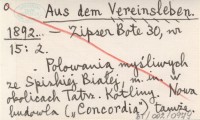 Aus dem Vereinsleben.
1892... – Zipser Bote 30, nr
15: 2.
- Polowania myśliwych
ze Spiskiej Białej, m. in. w
okolicach Tatrz. Kotliny. Nowa
budowla („Concordia”) tamże.